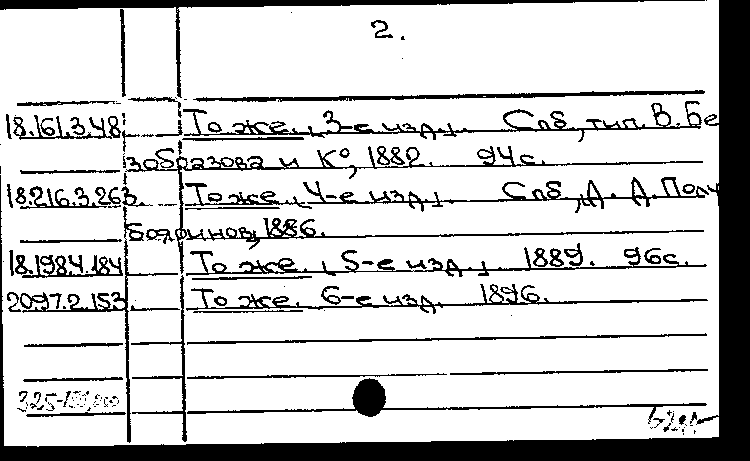 2.
18.161.3.48. То же. [3-е изд.]. Спб, тип. В. Бе
зобразова и К°, 1882. 94 с.
18.216.3.263. То же. [4-е изд.]. Спб, Д. Д. Полу
бояринов, 1886.
18.198.4.184 То же. [5-е изд.] 1889. 96 с.
2097.2.153. То же. 6-е изд. 1896.